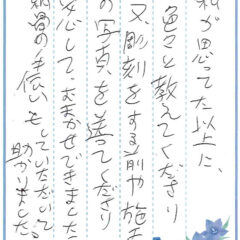 私が思ってた以上に、
色々と教えてくださり
又、彫刻をする前や施工
の写真を送ってくださり
安心して、おまかせできました
納骨の手伝いもしていただいて
助かりました。